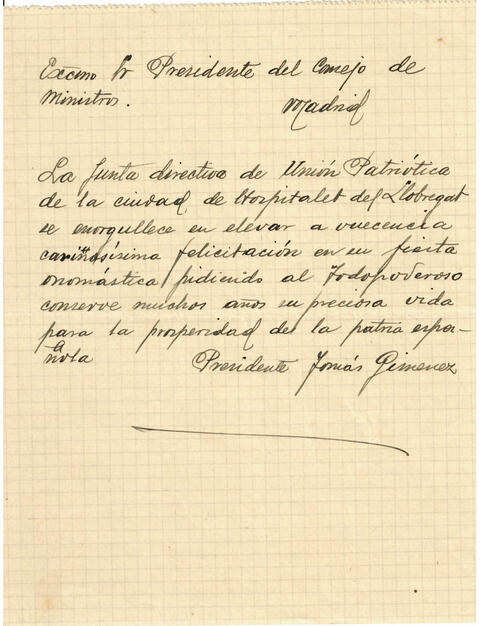 Excmo Sr Presidente del Consejo de
Ministros. Madrid
La Junta directiva de Unión Patriótica
de la ciudad de Hospitalet del Llobregat
se enorgullece en elevar a vuecencia
cariñosísima felicitación en su fiesta
onomástica pidiendo al Todopoderoso
conserve muchos años su preciosa vida
para la prosperidad de la patria espa-
ñola
Presidente Tomás Gimenez